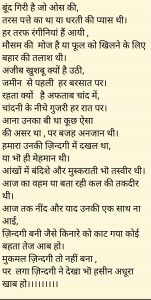 बूंद गिरी है जो ओस की,
तरस पत्ते का था या धरती की प्यास थी।
हर तरफ रंगीनियां हैं आयी ,
मौसम की  मोज है या फूल को खिलने के लिए
बहार की तलाश थी।
अजीब खुशबू क्यों है उठी,
जमीन  से पहली  हर बरसात पर।
रहता क्यों   है अफताब चांद में,
चांदनी के नीचे गुजरी हर रात पर।
आना उनका बी था कुछ ऐसा
की असर था , पर बजह अनजान थी।
हमारा उनकी ज़िन्दगी में दखल था,
या भी ही मेहमान थी।
आंखों में बंदिशे और मुस्कराती भी तस्वीर थी।
आज का वहम या बता रही कल की तकदीर
थी।
आज तक नींद और याद उनकी एक साथ ना
आई,
ज़िन्दगी बनी जैसे किनारे को काट गया कोई
बहता तेज आब हो।
मुकमल ज़िन्दगी तो नहीं बना ,
पर  लगा ज़िन्दगी ने देखा भी हसीन अधूरा
खाब हो।।।।।।।।।